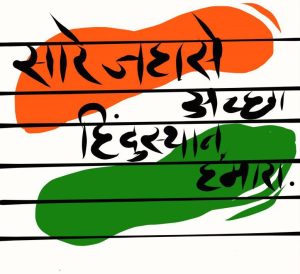 सारे जहासे
अच्छा
हिंदुस्थान,
हमारा.